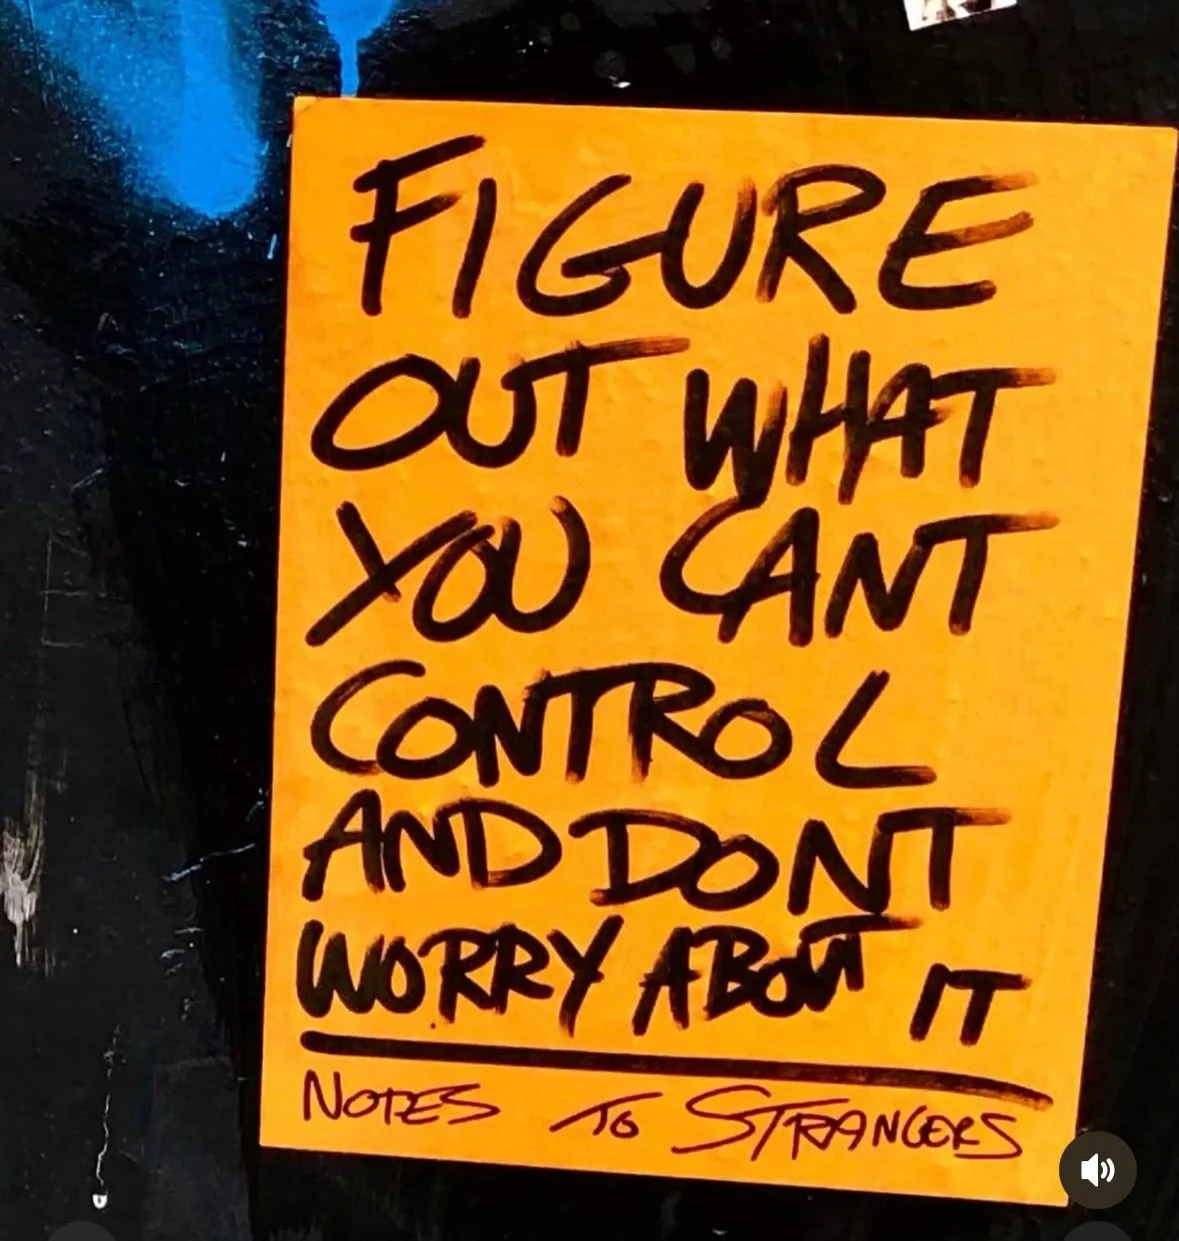 FIGURE
OUT WHAT
YOU CANT
CONTROL
AND DONT
WORRY ABOUT IT
NOTES TO STRANGERS